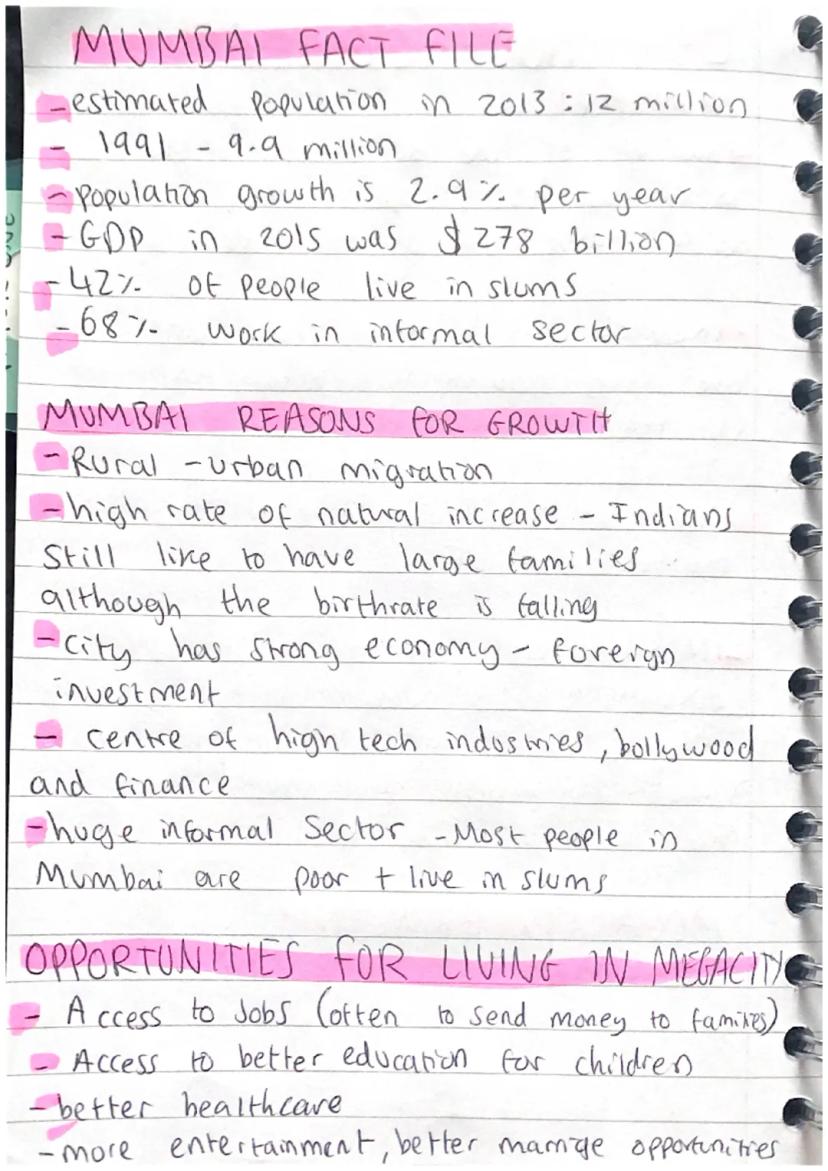 MUMBAI FACT FILE
- estimated population in 2013 : 12 million
- 1991 - 9.9 million
- population growth is 2.9% per year
- GDP in 2015 was $278 billion
- 42% of people live in slums
- 68% work in informal sector
MUMBAI REASONS FOR GROWTH
- Rural - urban migration
- high rate of natural increase - Indians
still like to have large families
although the birthrate is falling
- city has strong economy - foreign
investment
- centre of high tech industries, bollywood
and finance
- huge informal sector - Most people in
Mumbai are poor + live in slums
OPPORTUNITIES FOR LIVING IN MEGACITY
- Access to jobs (often to send money to families)
- Access to better education for children
- better healthcare
- more entertainment, better marriage opportunities